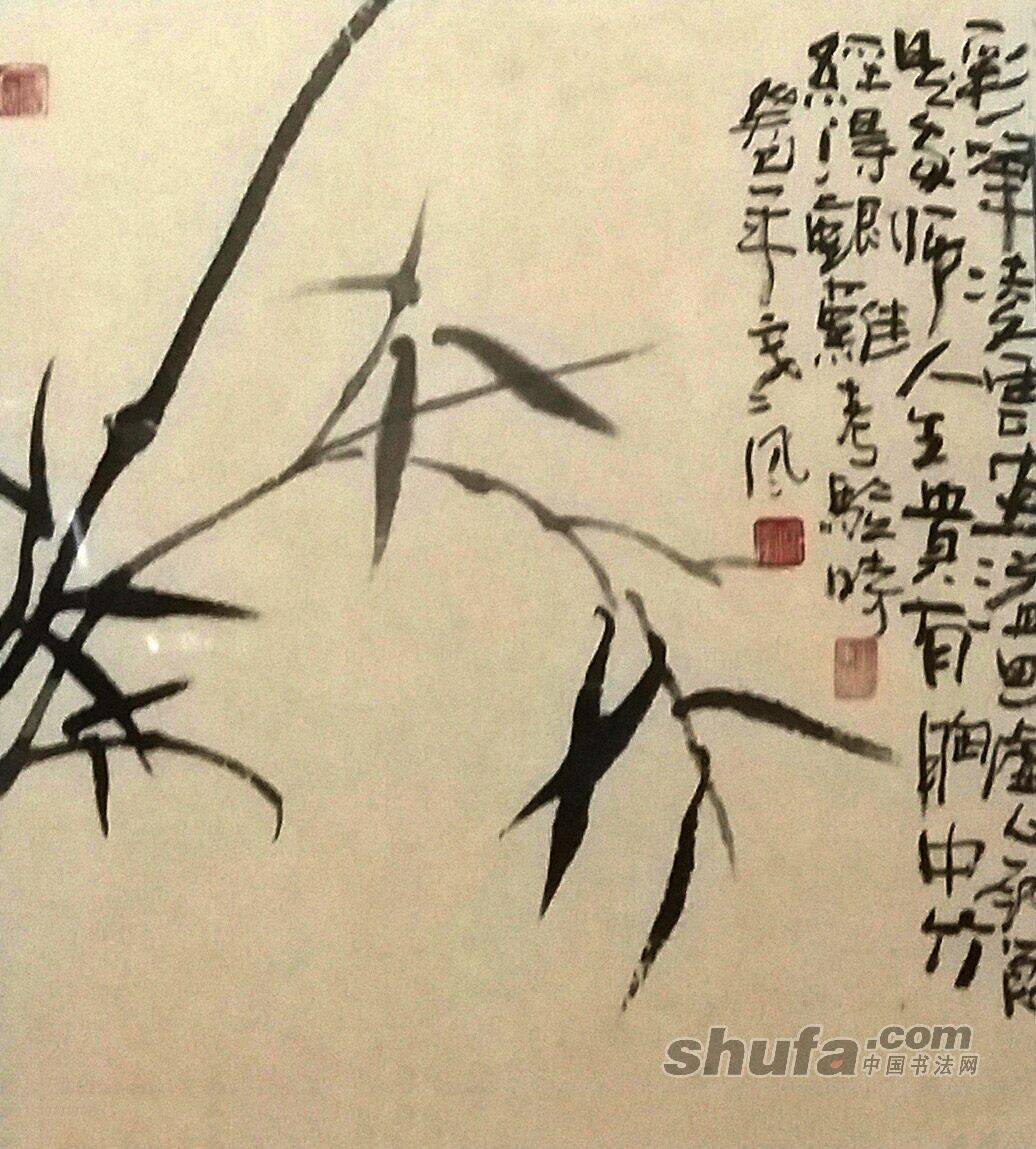 彩筆凌雲畫溢思虛心勁節
是吾師人生貴有胸中竹
經得艱難考驗時
癸巳年 風
shufa.com
中国书法网